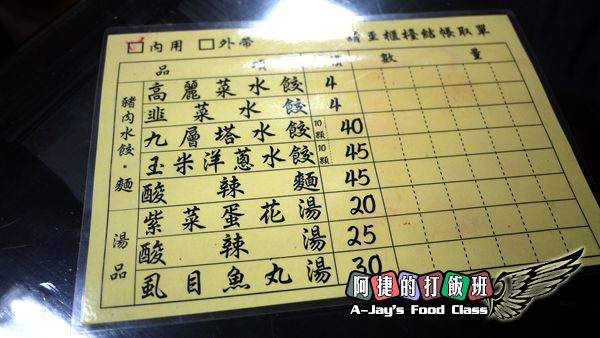 ☑內用 □外帶 請至櫃檯結帳取單
品 項 價 數 量
豬肉水餃．麵 湯品
高麗菜水餃 4
韭菜水餃 4
九層塔水餃 10顆 40
玉米洋蔥水餃 10顆 45
酸辣麵 45
紫菜蛋花湯 20
酸辣湯 25
虱目魚丸湯 30
阿捷的打飯班
A-Jay's Food Class